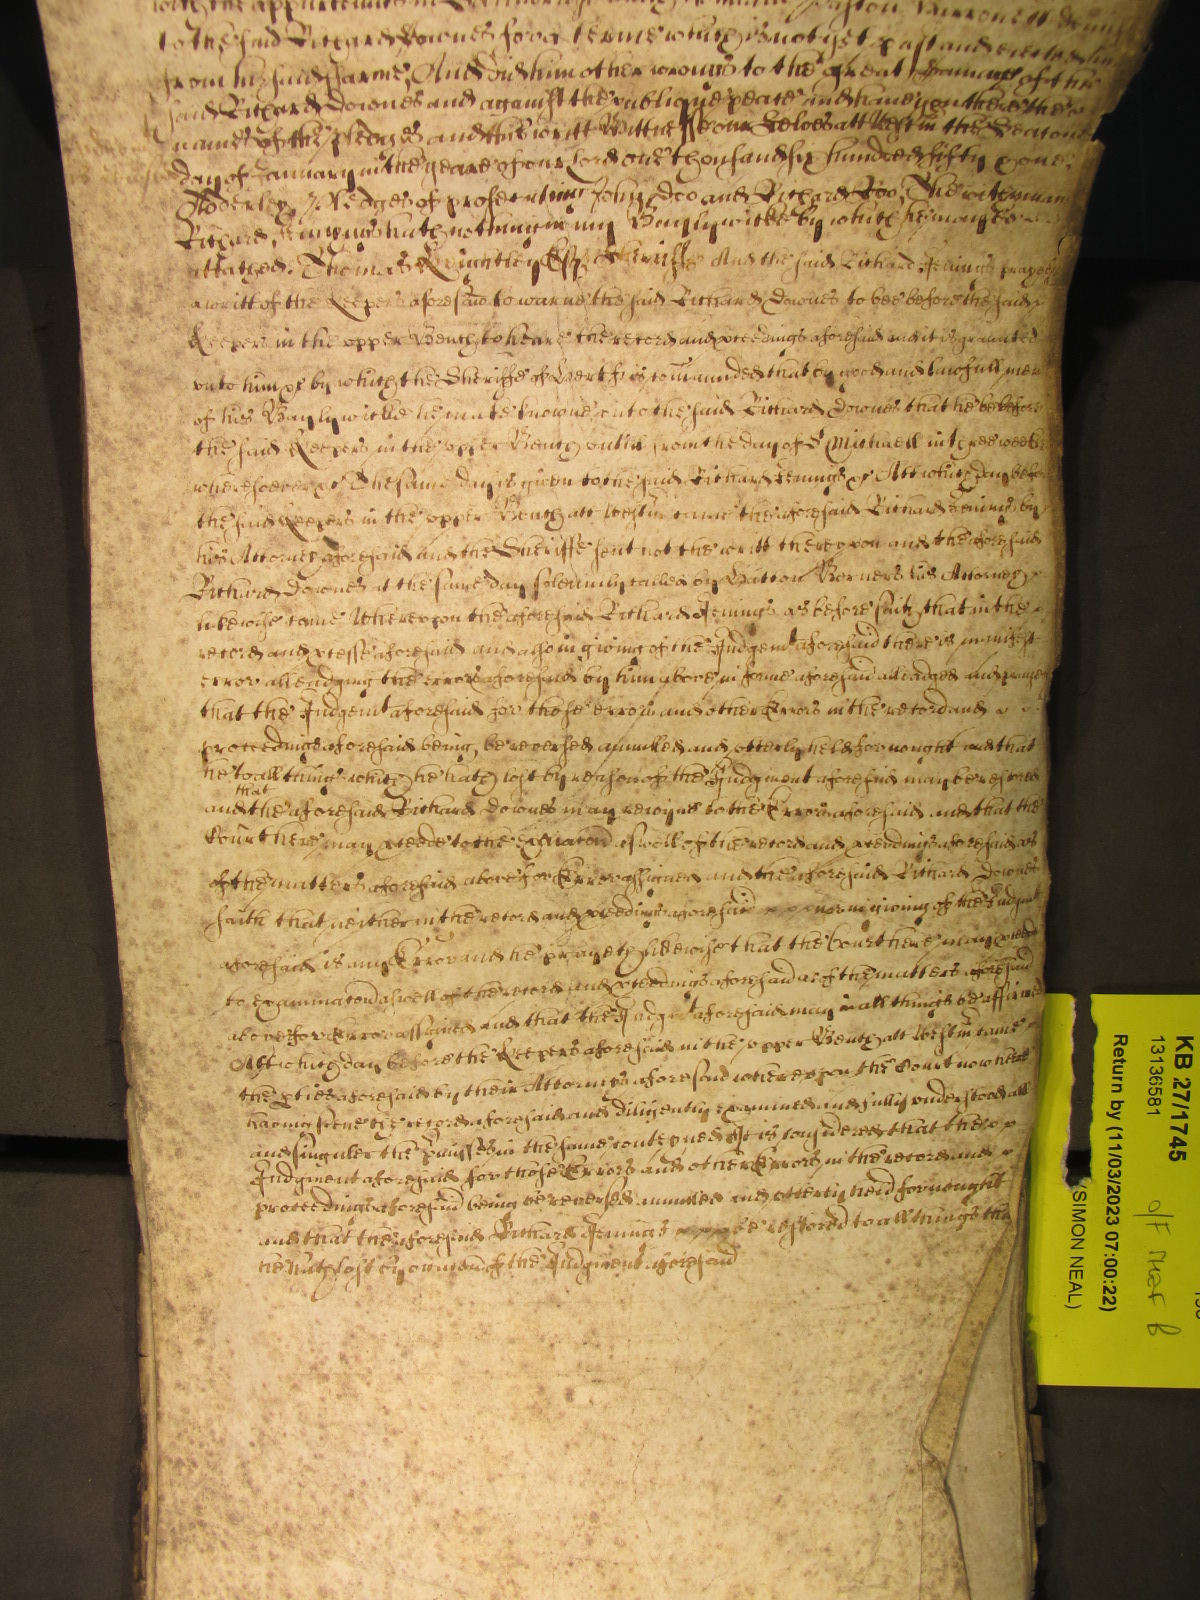 with the appurtenances in
to the said Richard Downes for a terme which is not yet past and eiected him
from his said farme, And did him other wrongs to the great damage of the
said Richard Downes and against the publique peace and have you there the
names of the pledges and this writt Wittnesse our selves att Westm the Seacond
day of January in the yeare of our Lord one thousand six hundred fifty & one
Adderley, Pledges of prosecuting John Doo and Richard Roo, The within named
Richard Jenings hath nothing in my Baylywicke by which he may be
attached. Thomas Keightley Esq Sheriffe And the said Richard Jenings prayeth
a writt of the Keepers aforesaid to warne the said Richard Downes to bee before the said
Keepers in the upper Bench to heare the record and pceedings aforesaid and it is graunted
unto him &c by which the Sheriffe of Hertf is comanded that by good and lawfull men
of his Baylywicke he make knowne unto the said Richard Downes that he be before
the said Keepers in the upper Bench untill from the day of St Michaell in three weekes
wheresoever &c The same day is given to the said Richard Jenings &c Att which day before
the said Keepers in the upper Bench att Westm came the aforesaid Richard Jenings by
his Attorney aforesaid and the Sheriffe sent not the writt thereupon and the aforesaid
Richard Downes at the same day solemnly called by Hatton Berners his Attorney
likewise came Whereupon the aforesaid Richard Jenings as before saith that in the
record and pcesse aforesaid and also in giving of the Judgemt aforesaid there is manifest
error alleadging the errors aforesaid by him above in forme aforesaid alleadged and prayeth
that the Judgemt aforesaid for those errors and other Errors in the record and
proceedings aforesaid being, be reversed anulled and utterly held for nought and that
he to all things which he hath lost by reason of the Judgment aforesaid may be restored
and that the aforesaid Richard Downes may reioyne to the Errors aforesaid and that the
Court here may pceede to the examinacon aswell of the record and pceedings aforesaid as
of the matters aforesaid above for Error assigned and the aforesaid Richard Downes
saith that neither in the record and pceedings aforesaid nor in giving of the Judgmt
aforesaid is any Error and he prayeth likewise that the Court here may pceede
to examinacon aswell of the record and pceedings aforesaid as of the matters aforesaid
above for Error assigned and that the Judgmt aforesaid may in all things be affirmed
Att which day before the Keepers aforesaid in the upper Bench att Westm came
the pties aforesaid by their Attorneys aforesaid whereupon the Court now here
having seene the record aforesaid and diligently examined and fully understood all
and singuler the pmisses in the same conteyned It is considered that the
Judgment aforesaid for those Errors and other Errors in the record and
proceedings aforesaid being be reversed anulled and utterly held for nought
and that the aforesaid Richard Jenings be restored to all things that
he hath lost by occasion of the Judgment aforesaid
KB 27/1745
13136581
Return by (11/03/2023 07:00:22)
(SIMON NEAL)